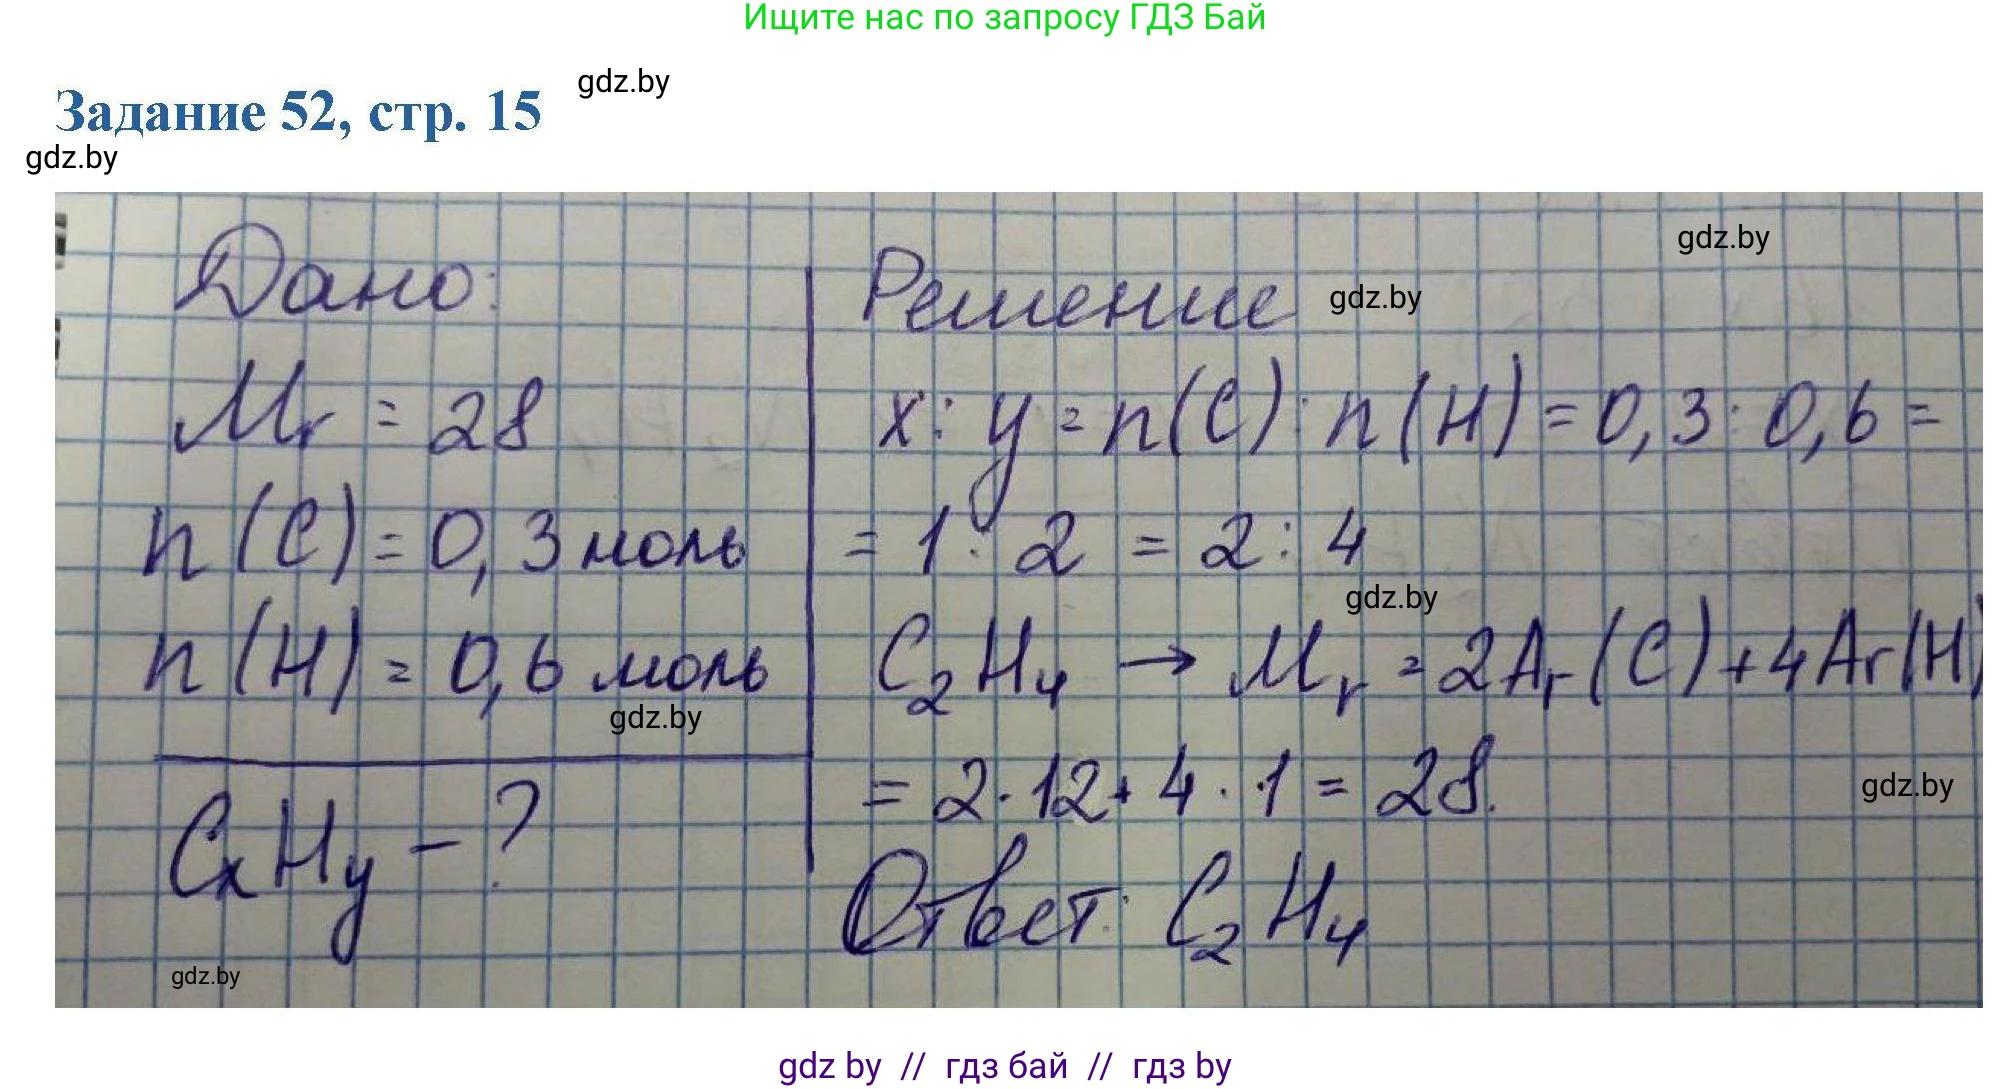 Ищите нас по запросу ГДЗ Бай
gdz.by
Задание 52, стр. 15
gdz.by
gdz.by
Дано:
Mr = 28
n(C) = 0,3 моль
n(H) = 0,6 моль
gdz.by
CxHy - ?
gdz.by
Решение
gdz.by
x : y = n(C) : n(H) = 0,3 : 0,6 =
= 1 : 2 = 2 : 4
gdz.by
C₂H₄ → Mr = 2Ar(C) + 4Ar(H)
= 2·12 + 4·1 = 28.
gdz.by
Ответ: C₂H₄
gdz by // гдз бай // гдз by